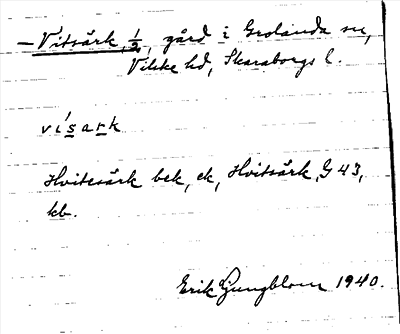 — Vitsärk, 1/2, gård i Grolanda sn,
Vilske hd, Skaraborgs l.
vísark
Hvitesärk bek, ek, Hvitsärk, G 43,
kb.
Erik Ljungblom 1940.